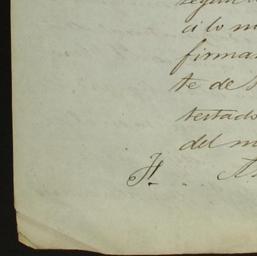 según
ci lo m
firma
te de
testado
del m